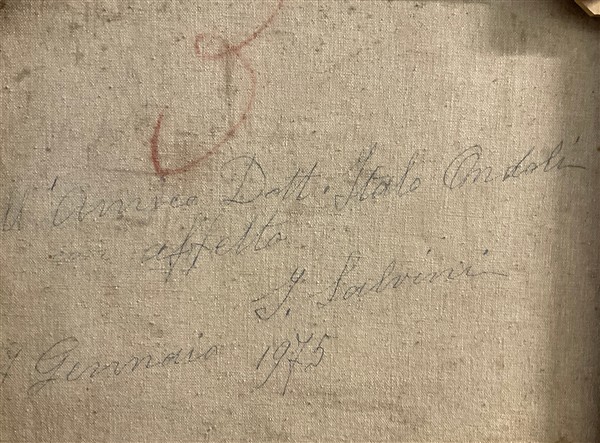 all'Amico Dott. Italo Ondoli
con affetto
I. Salvini
7 Gennaio 1975